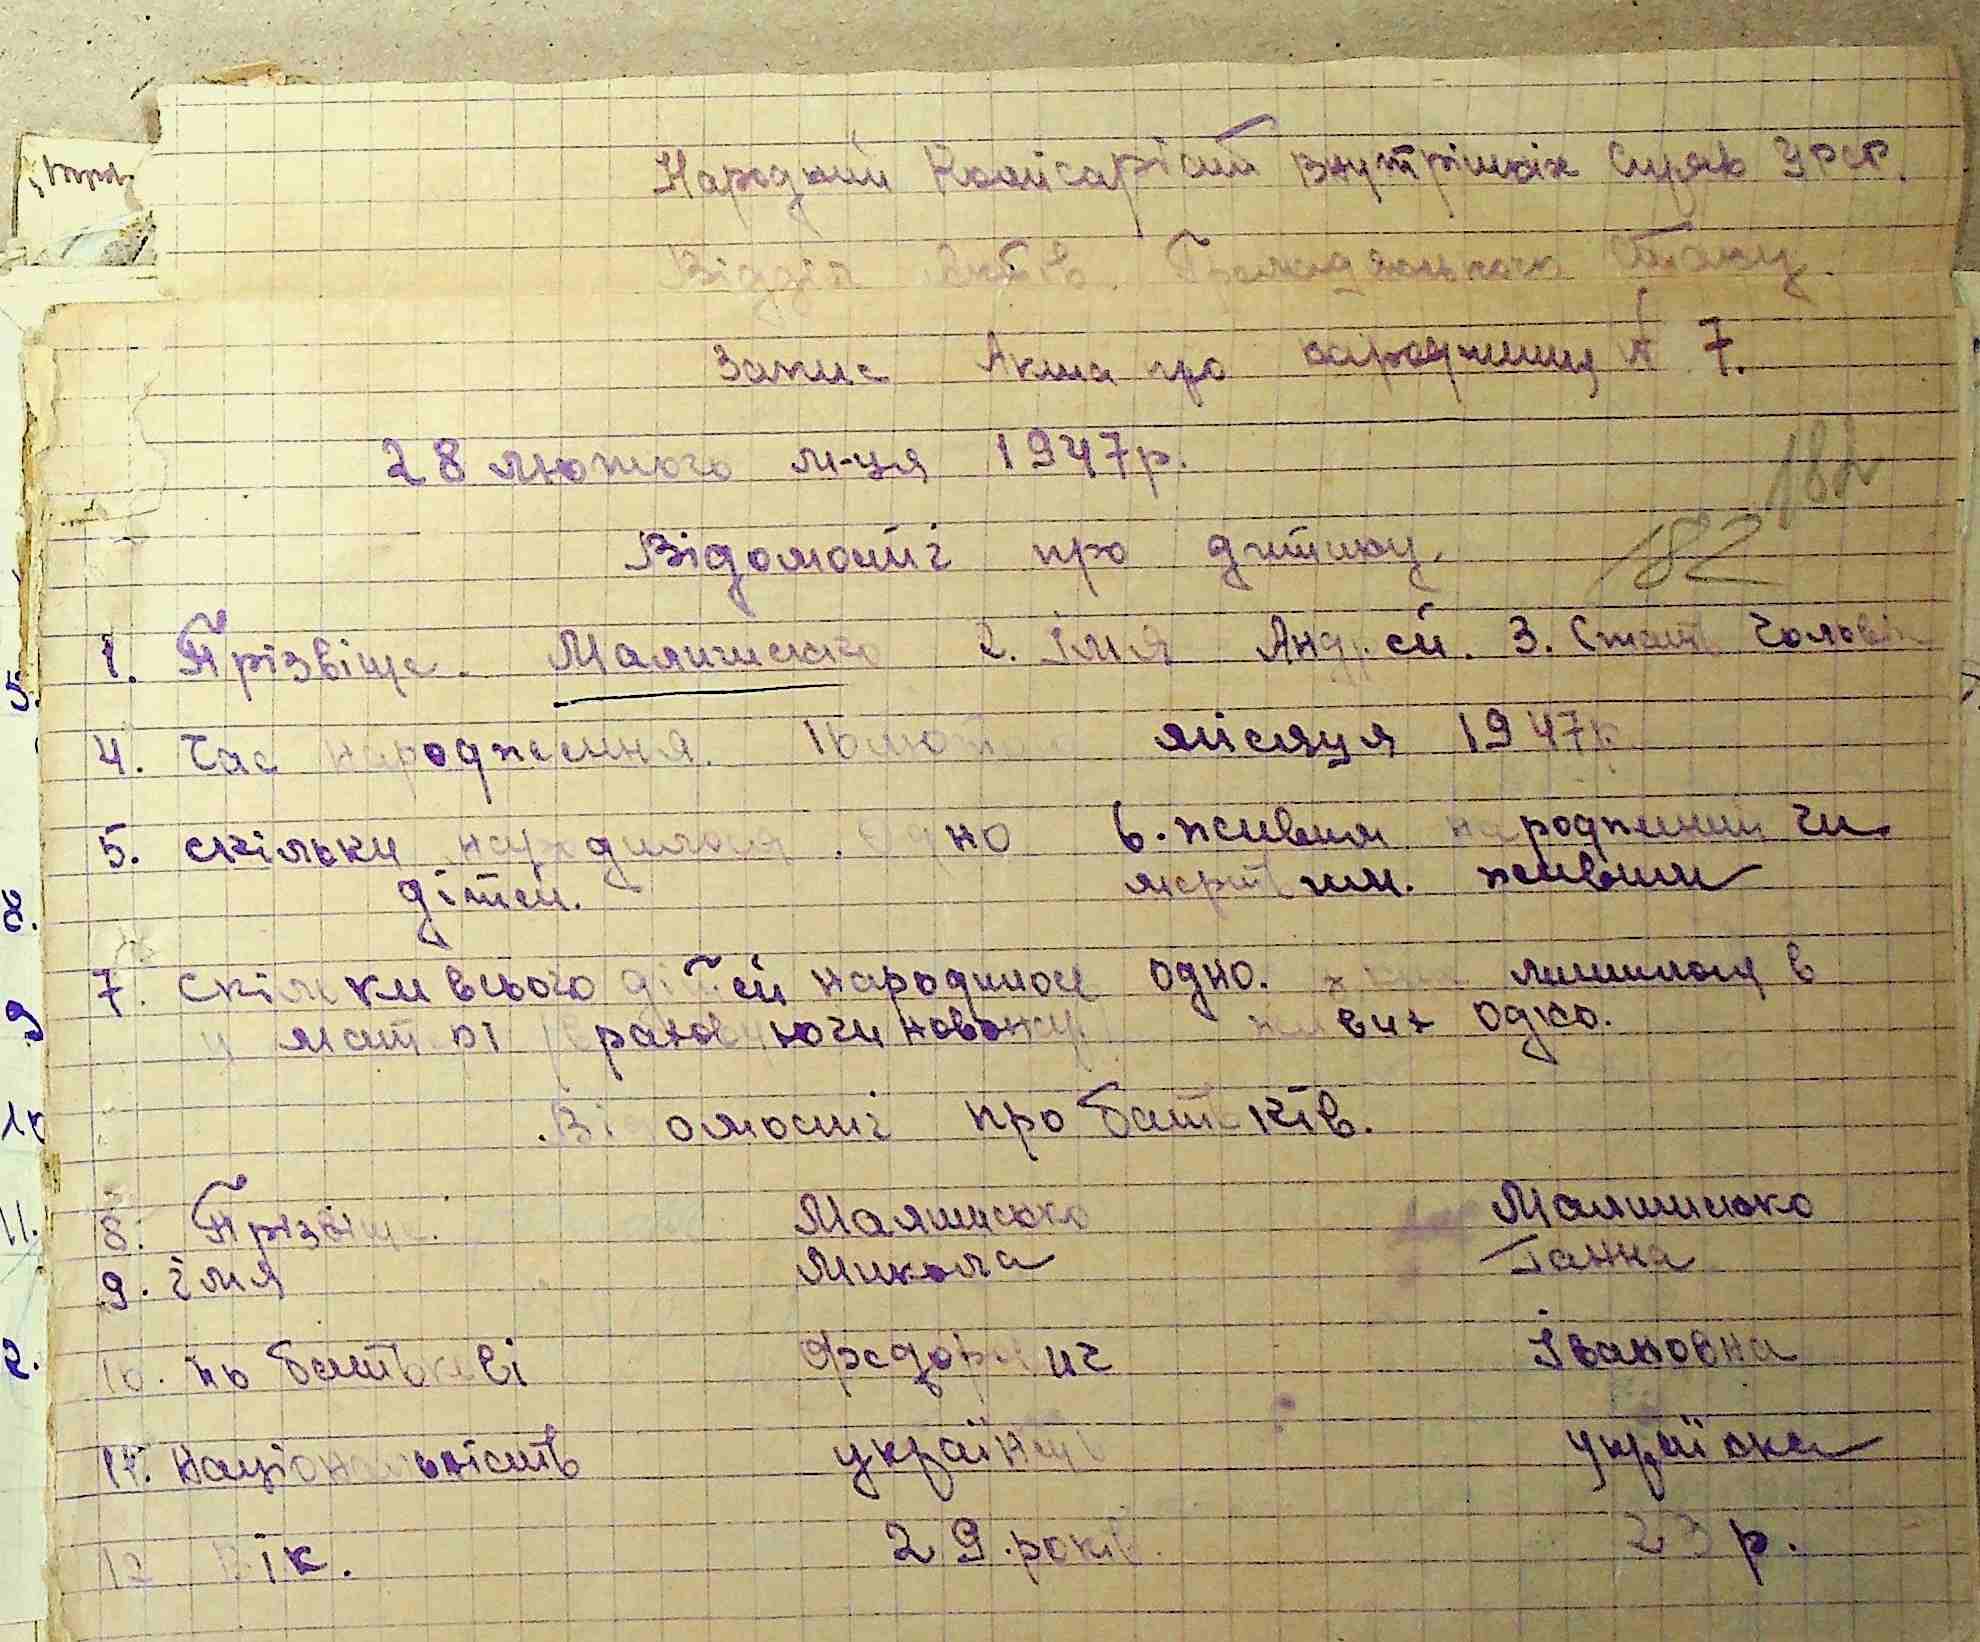 Народний Комісаріат внутрішніх Справ УРСР.
Відділ Актів Громадянського Стану.
Запис Акта про народження № 7.
28 лютого м-ця 1947 р.
182
Відомості про дитину.
182
1. Прізвище. Малишенко 2. імя Андрей. 3. Стать чоловік
4. Час народження. 16 лютого місяця 1947 р.
5. скільки народилося одно 6. живим народжений чи
дітей. мертвим. живим
7. Скільки всього дітей народилося одно. лишилося в
у матері враховуючи новонар. живих одно.
Відомості про батьків.
8. Прізвище. Малишенко Малишенко
9. імя Микола Ганна
10. по батькові Федорович Івановна
11. національність українець українка
12 вік. 29 років. 23 р.